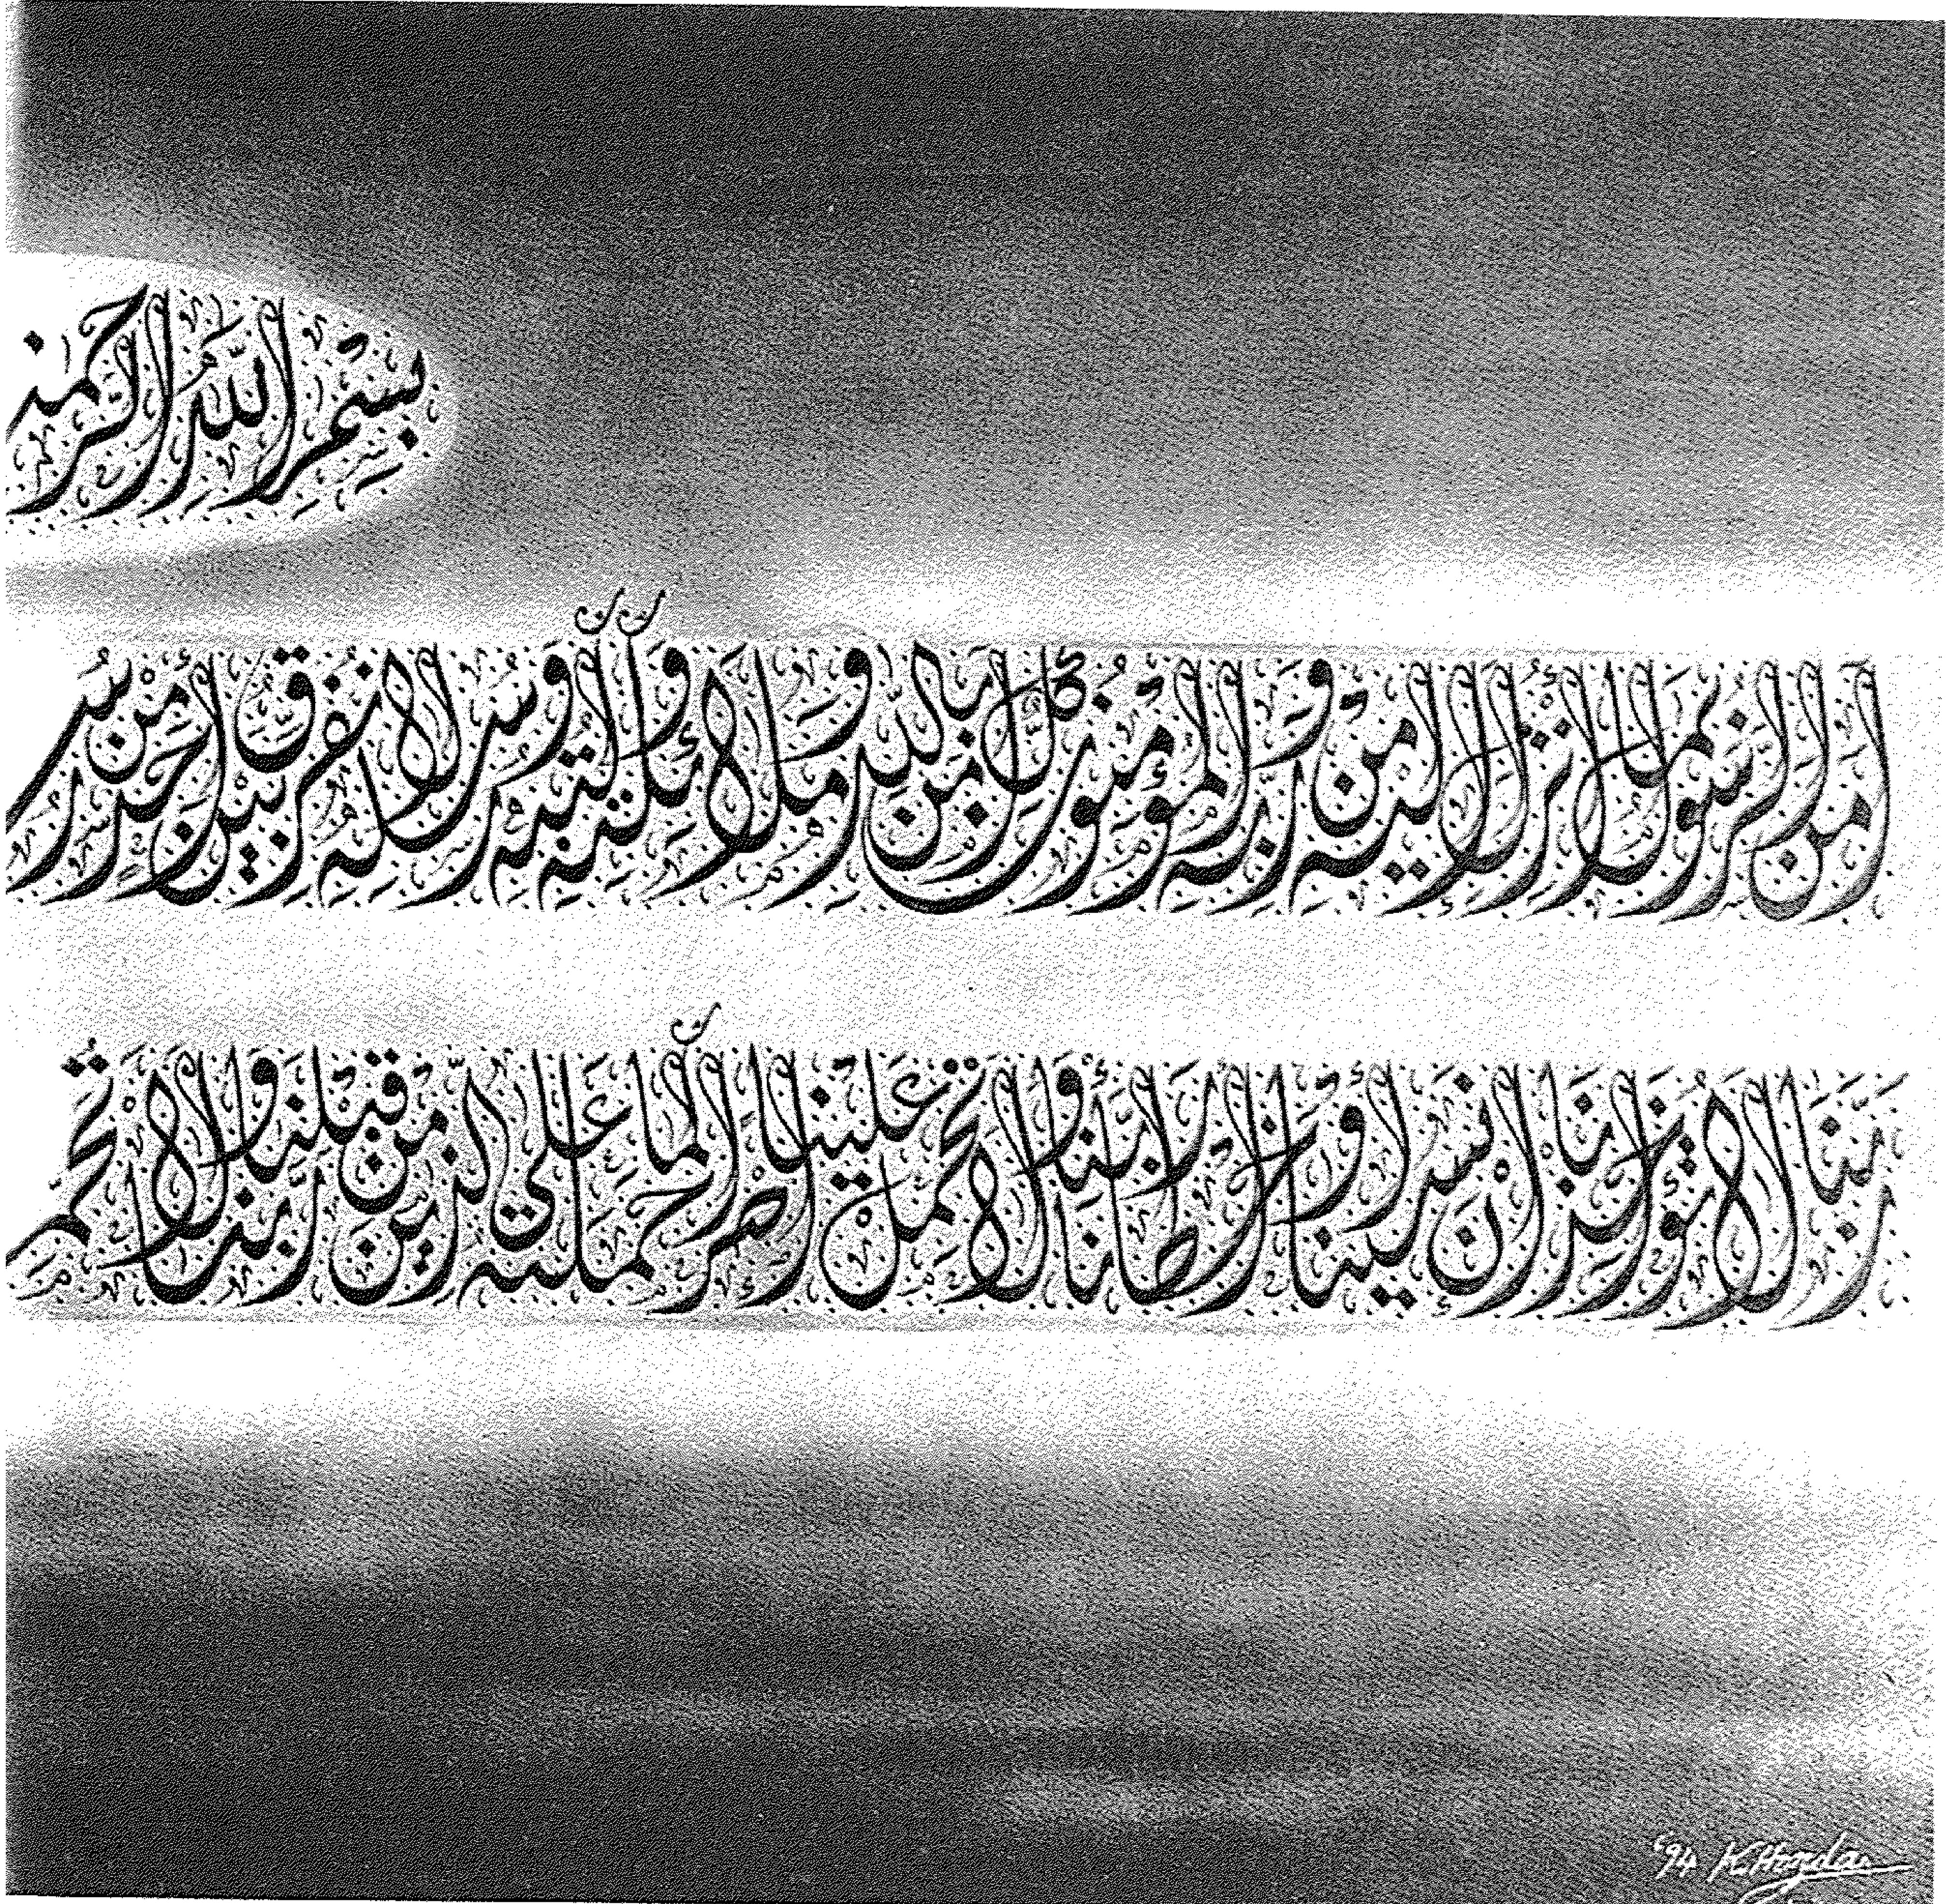 بِسْمِ اللَّهِ الرَّحْمَن
آمَنَ الرَّسُولُ بِمَا أُنْزِلَ إِلَيْهِ مِنْ رَبِّهِ وَالْمُؤْمِنُونَ كُلٌّ آمَنَ بِاللَّهِ وَمَلَائِكَتِهِ وَكُتُبِهِ وَرُسُلِهِ لَا نُفَرِّقُ بَيْنَ أَحَدٍ مِنْ رُسُ
رَبَّنَا لَا تُؤَاخِذْنَا إِنْ نَسِينَا أَوْ أَخْطَأْنَا رَبَّنَا وَلَا تَحْمِلْ عَلَيْنَا إِصْرًا كَمَا حَمَلْتَهُ عَلَى الَّذِينَ مِنْ قَبْلِنَا رَبَّنَا وَلَا تُحَمِّ
'94 K. Honda